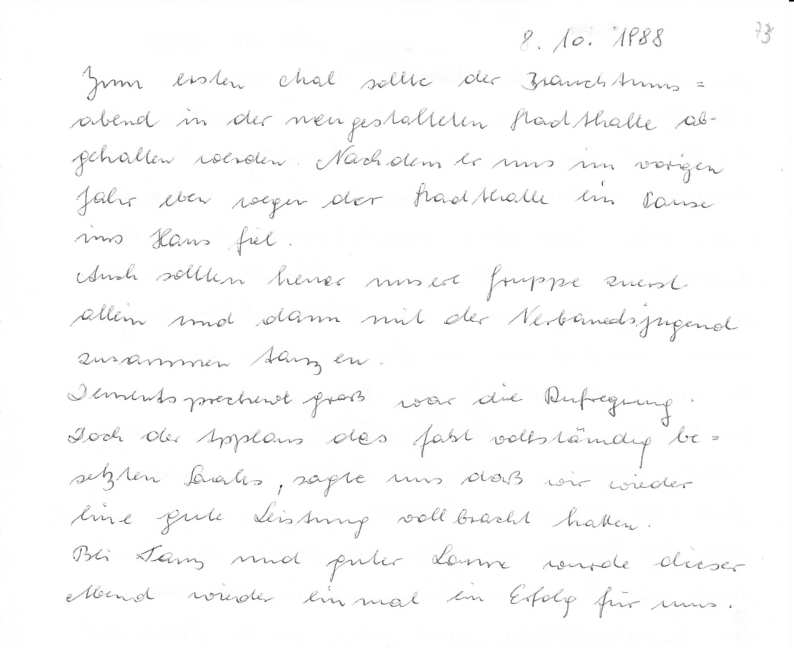 8. 10. 1988
73
Zum ersten Mal sollte der Brauchtums=
abend in der neugestalteten Stadthalle ab-
gehalten werden. Nachdem er uns im vorigen
Jahr eben wegen der Stadthalle ein
ins Haus fiel.
Auch sollten heuer unsere Gruppe zuerst
allein und dann mit der Verbandsjugend
zusammen tanzen.
Dementsprechend groß war die Aufregung.
Doch der Applaus des fast vollständig be=
setzten Saales, sagte uns daß wir wieder
eine gute Leistung vollbracht hatten.
Bei Tanz und guter Laune wurde dieser
Abend wieder einmal ein Erfolg für uns.